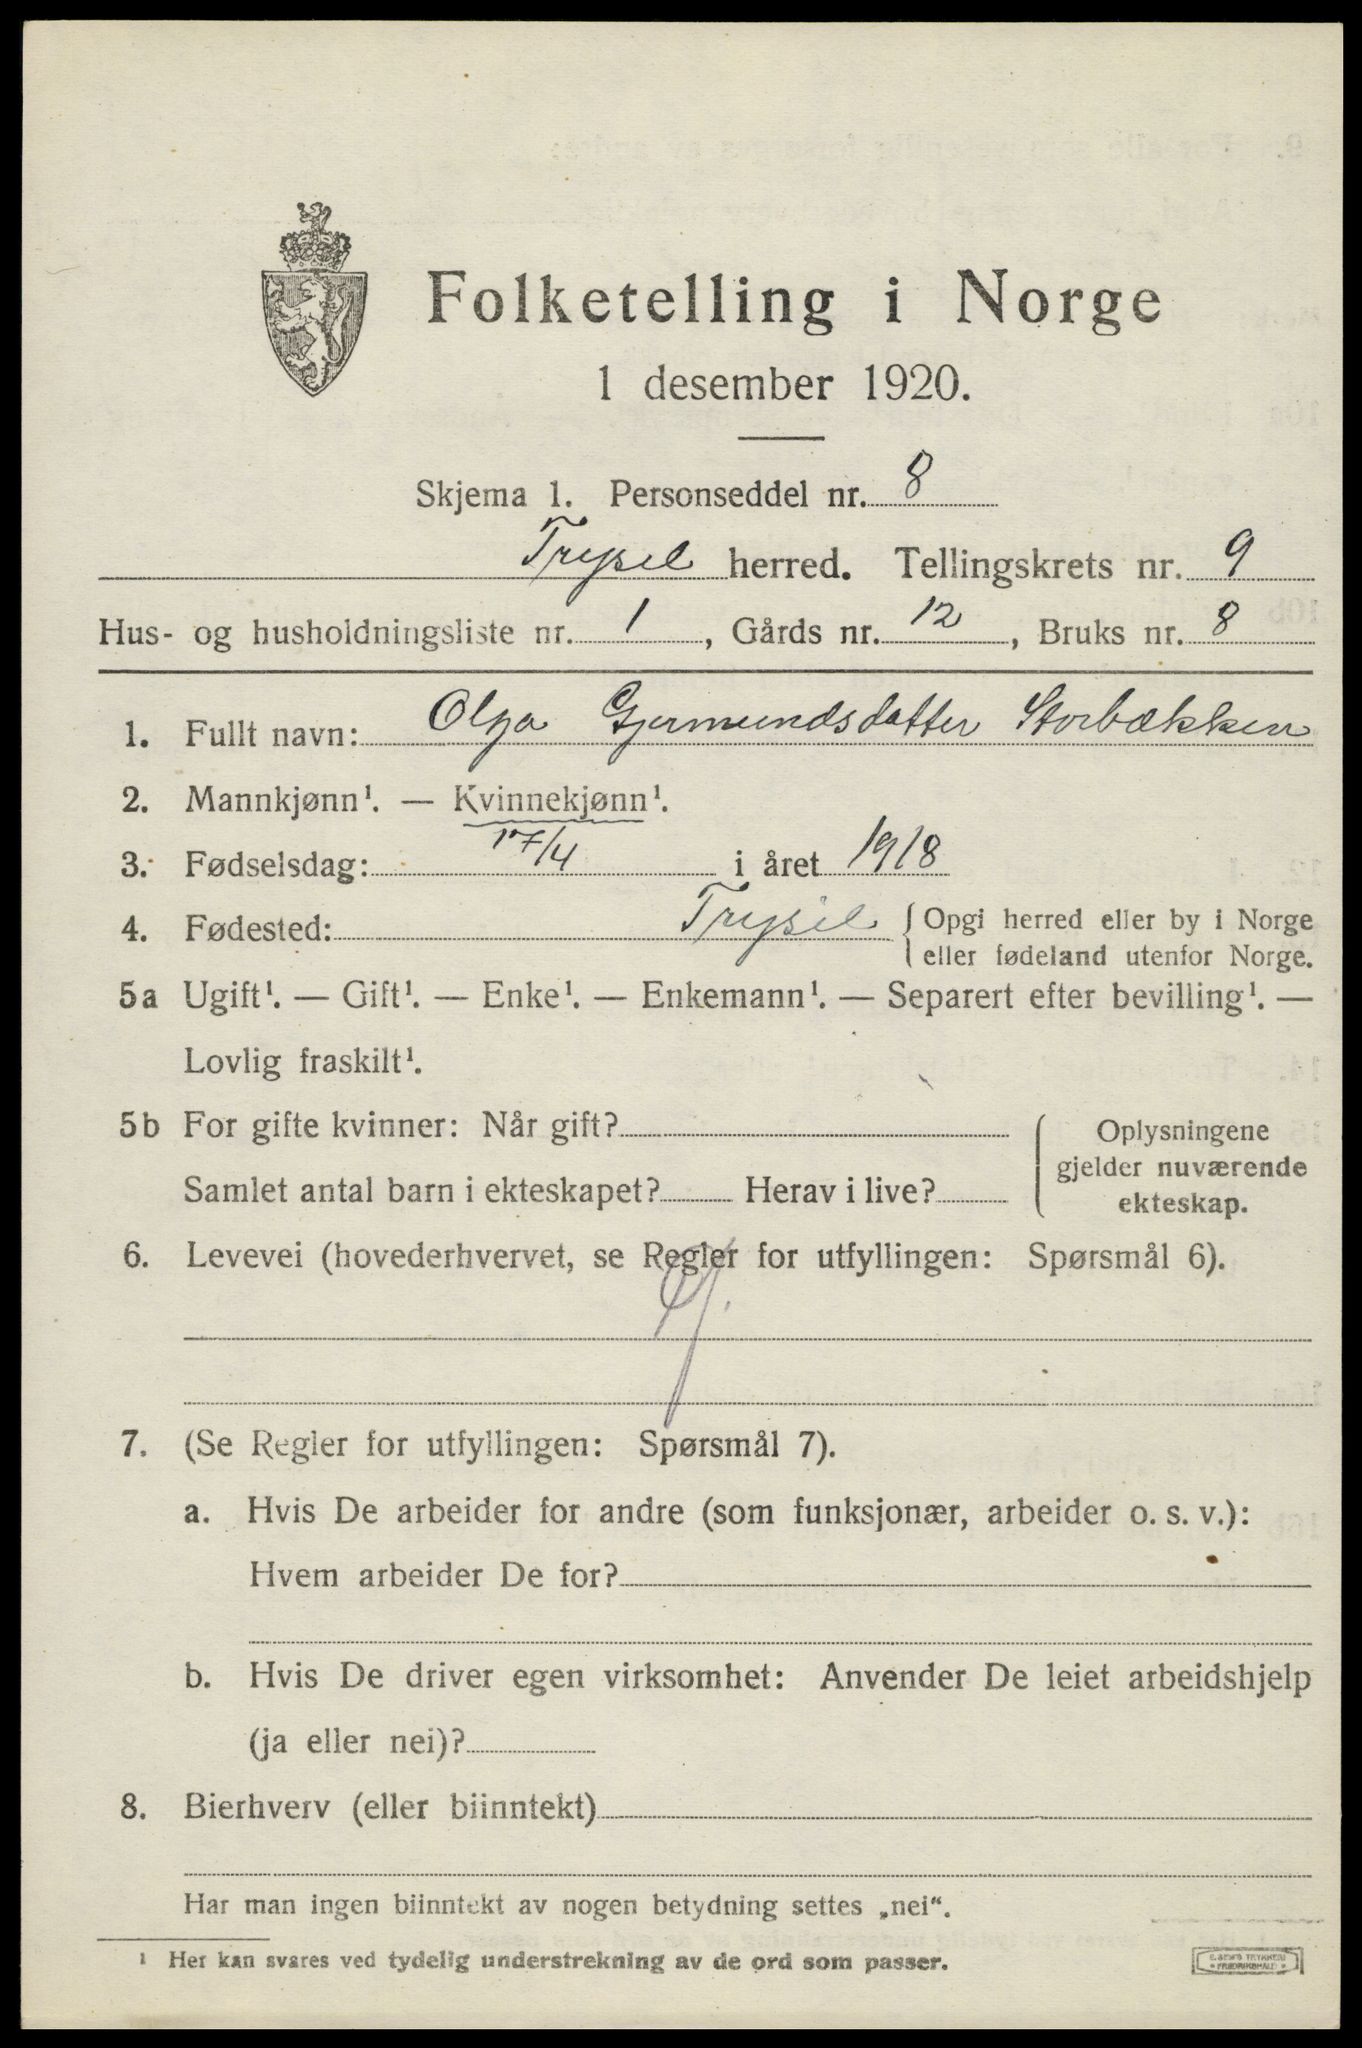 Folketelling i Norge
1 desember 1920.
Skjema 1. Personseddel nr. 8
Trysil herred. Tellingskrets nr. 9
Hus- og husholdningsliste nr. 1, Gårds nr. 12, Bruks nr. 8
1. Fullt navn: Olga Gjermundsdatter Storbækken
2. Mannkjønn¹. — Kvinnekjønn¹.
3. Fødselsdag: 17/4 i året 1918
4. Fødested: Trysil { Opgi herred eller by i Norge
eller fødeland utenfor Norge.
5a Ugift¹. — Gift¹. — Enke¹. — Enkemann¹. — Separert efter bevilling¹. —
Lovlig fraskilt¹.
5b For gifte kvinner: Når gift?
Samlet antal barn i ekteskapet? Herav i live?
Oplysningene
gjelder nuværende
ekteskap.
6. Levevei (hovederhvervet, se Regler for utfyllingen: Spørsmål 6).
7. (Se Regler for utfyllingen: Spørsmål 7).
a. Hvis De arbeider for andre (som funksjonær, arbeider o. s. v.):
Hvem arbeider De for?
b. Hvis De driver egen virksomhet: Anvender De leiet arbeidshjelp
(ja eller nei)?
8. Bierhverv (eller biinntekt)
Har man ingen biinntekt av nogen betydning settes „nei“.
¹ Her kan svares ved tydelig understrekning av de ord som passer.